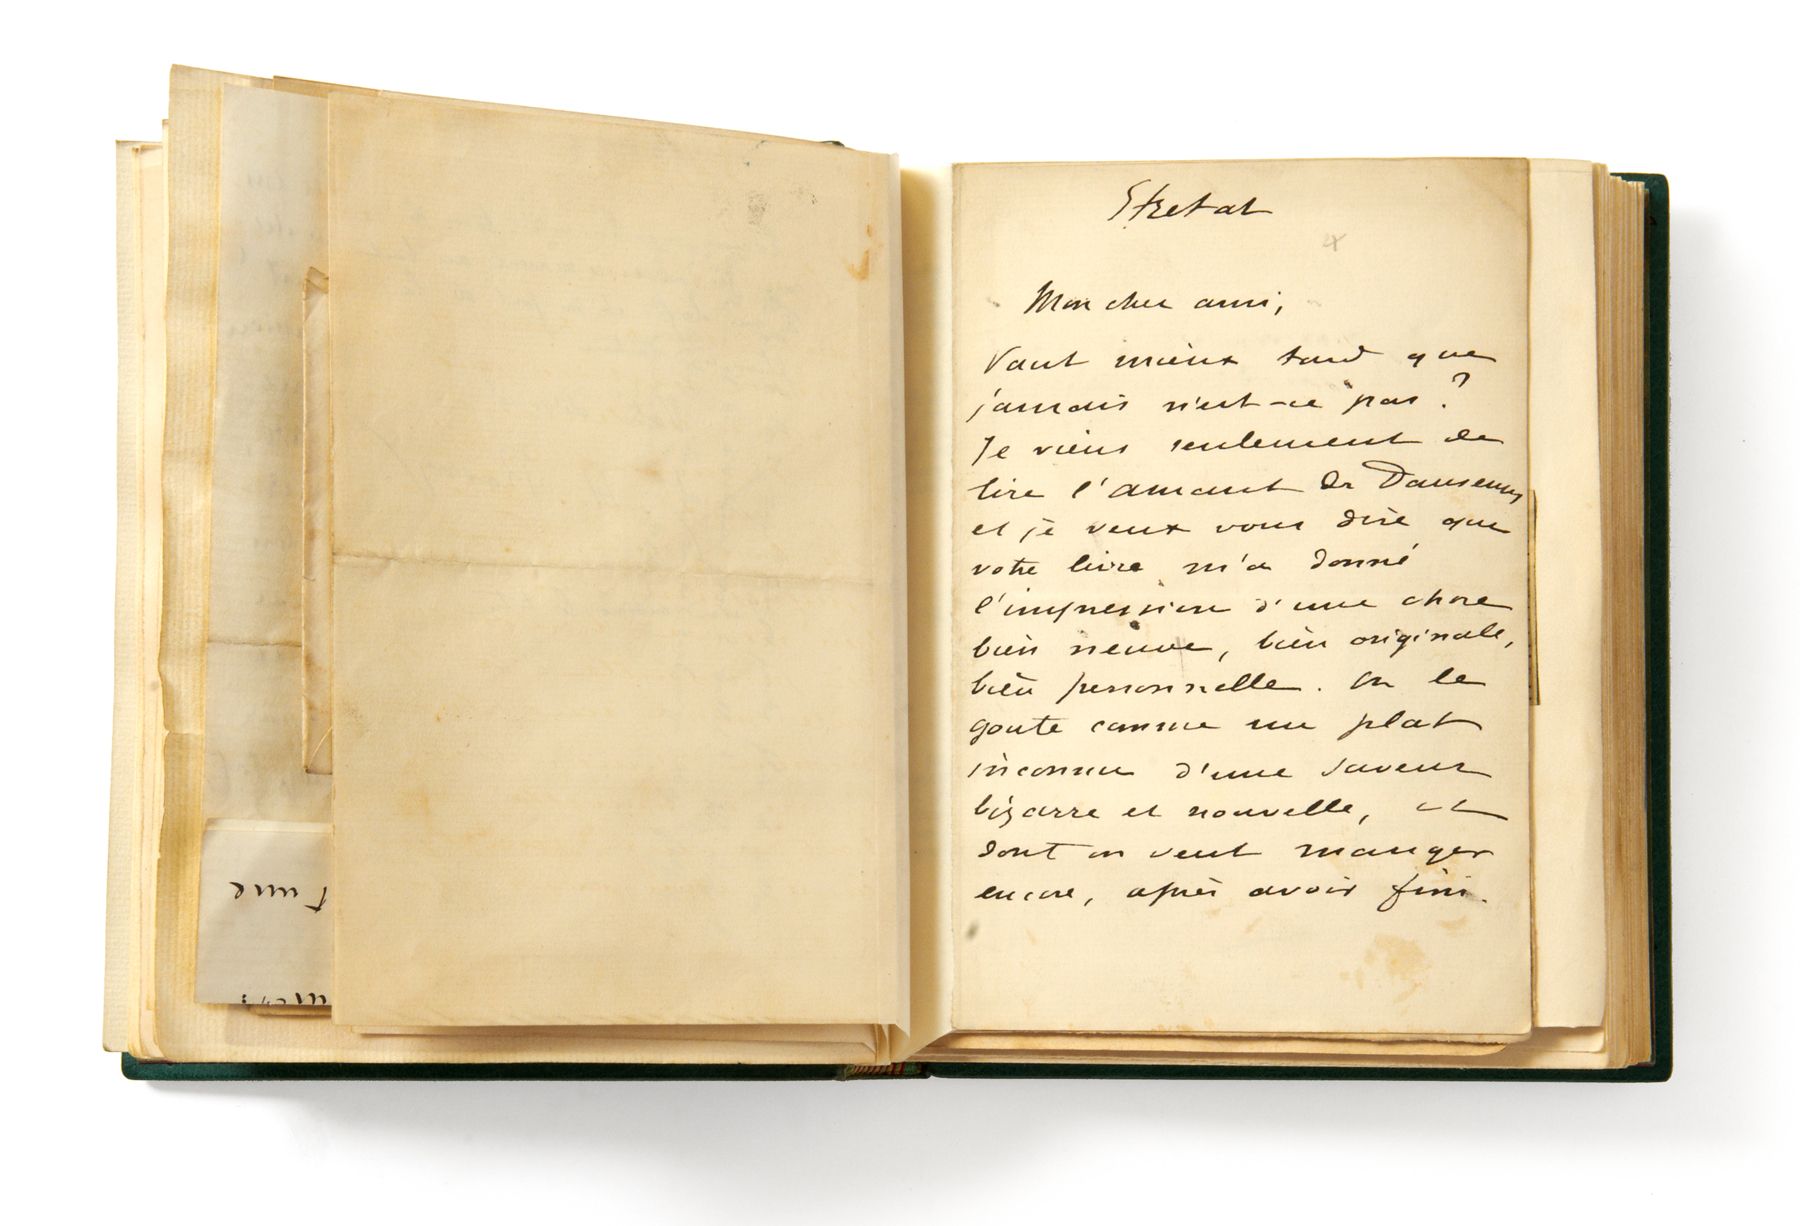 Etretat
Mon cher ami,
Vaut mieux tard que
jamais n'est-ce pas ?
Je viens seulement de
lire l'amant des Danseuses
et je veux vous dire que
votre livre m'a donné
l'impression d'une chose
bien neuve, bien originale,
bien personnelle. On le
goute comme un plat
inconnu d'une saveur
bizarre et nouvelle, et
dont on veut manger
encore, après avoir fini.